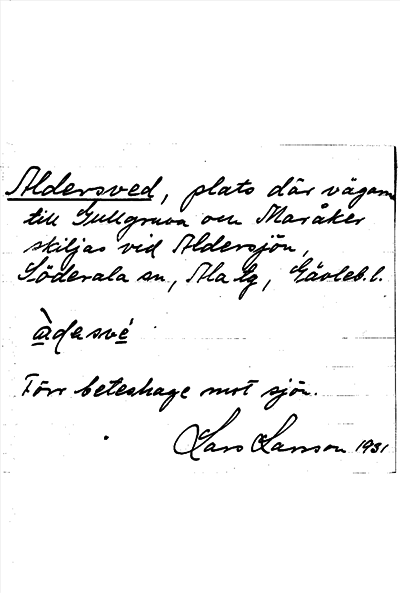 Aldersved, plats där vägarna
till Gullgruva och Maråker
skiljas vid Aldersjön,
Söderala sn, Ala tg, Gävleb. l.
àdesvé
Förr beteshage mot sjön.
Lars Larsson 1931